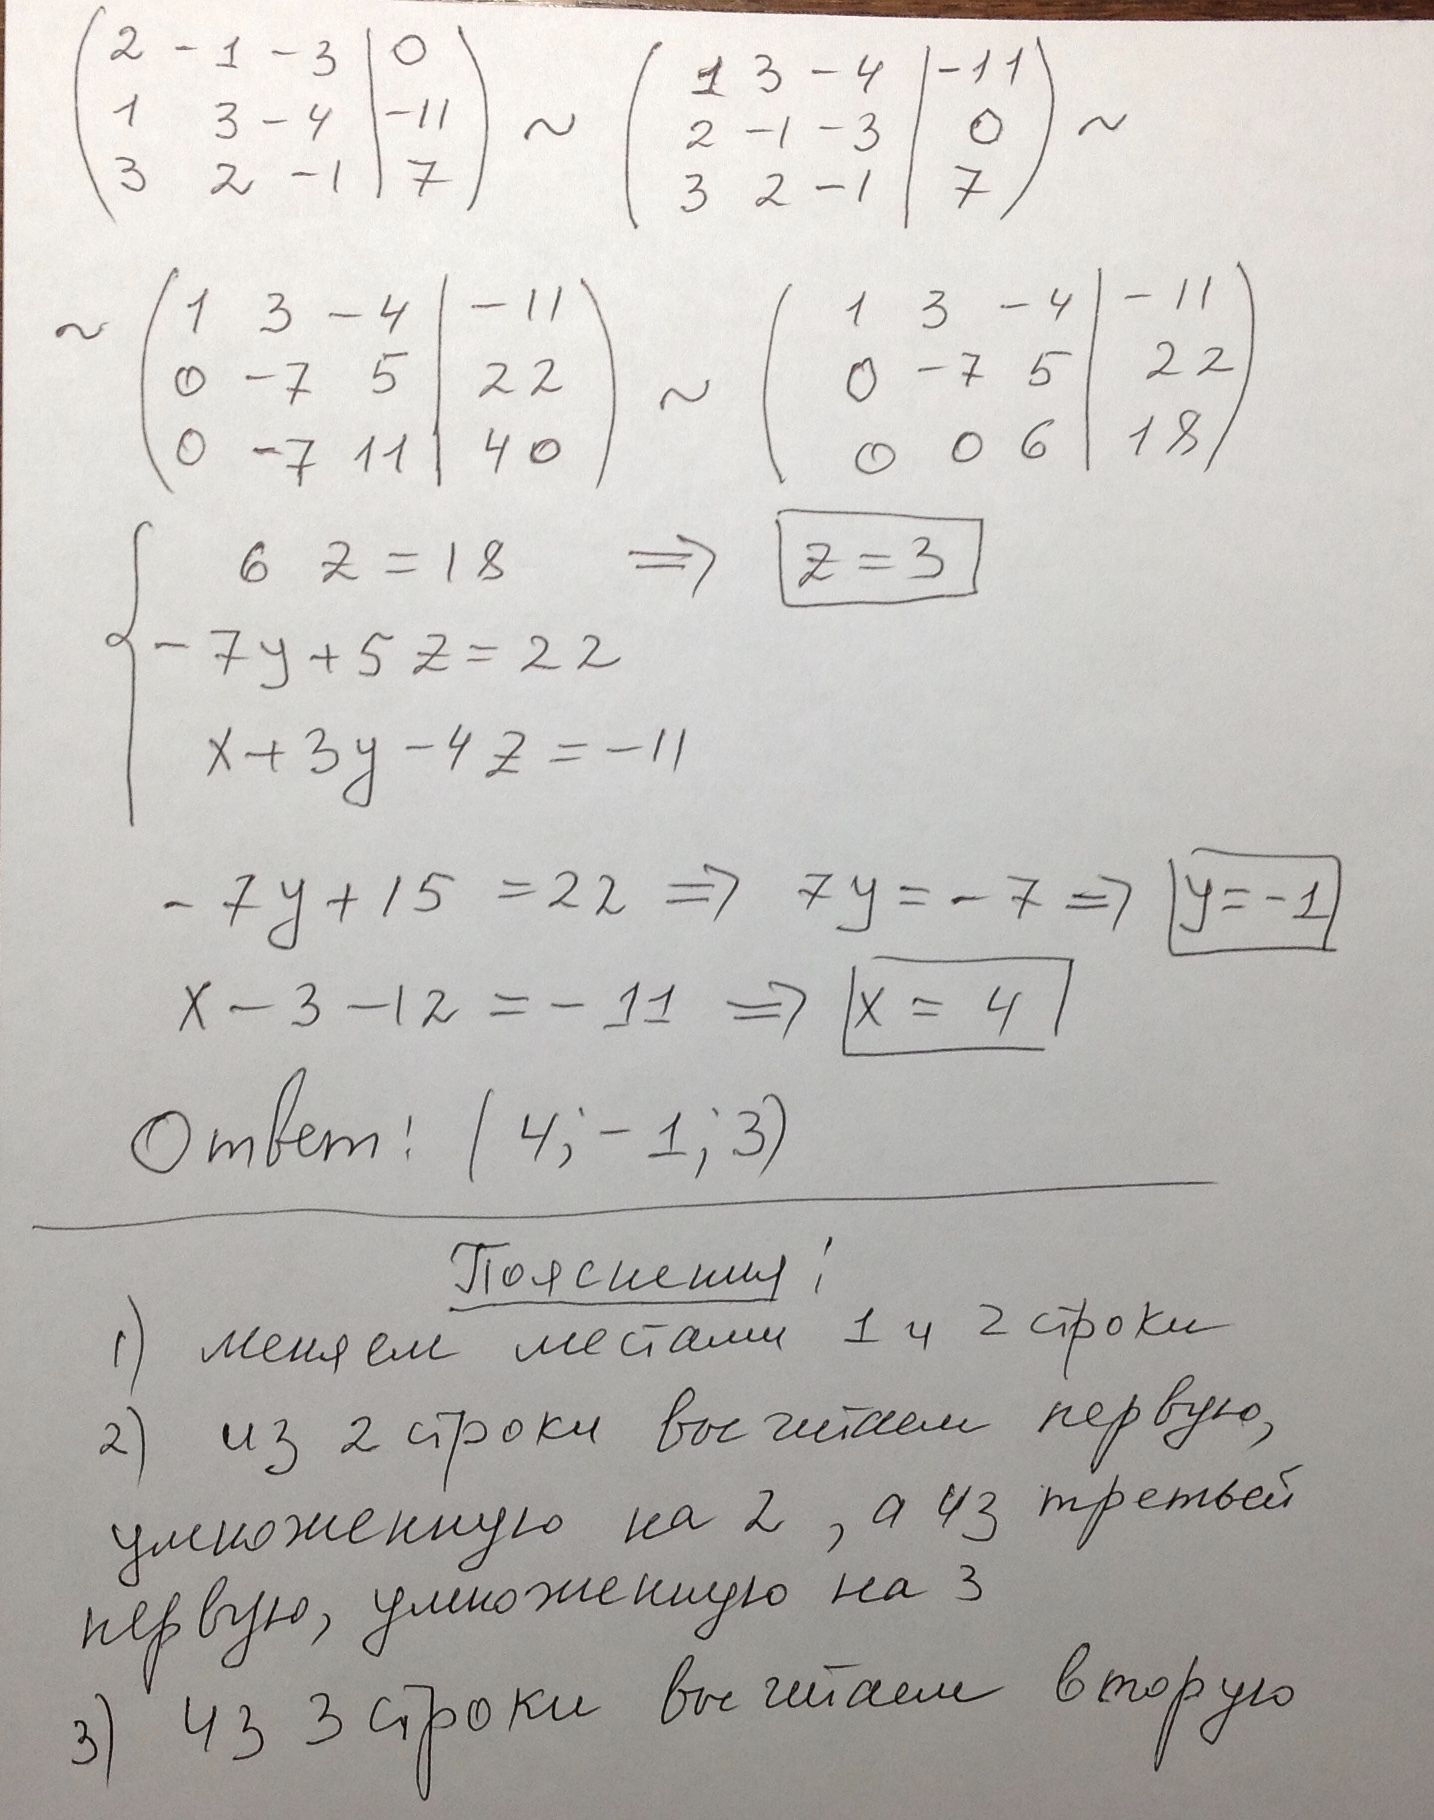 ( 2 -1 -3 | 0 ) ( 1 3 -4 | -11 )
( 1 3 -4 | -11 ) ~ ( 2 -1 -3 | 0 ) ~
( 3 2 -1 | 7 ) ( 3 2 -1 | 7 )
~ ( 1 3 -4 | -11 ) ( 1 3 -4 | -11 )
( 0 -7 5 | 22 ) ~ ( 0 -7 5 | 22 )
( 0 -7 11 | 40 ) ( 0 0 6 | 18 )
{ 6 z = 18 ⇒ z = 3
-7y + 5z = 22
x + 3y - 4z = -11
-7y + 15 = 22 ⇒ 7y = -7 ⇒ y = -1
x - 3 - 12 = -11 ⇒ x = 4
Ответ: (4; -1; 3)
Пояснения:
1) меняем местами 1 и 2 строки
2) из 2 строки вычитаем первую,
умноженную на 2, а из третьей
первую, умноженную на 3
3) из 3 строки вычитаем вторую